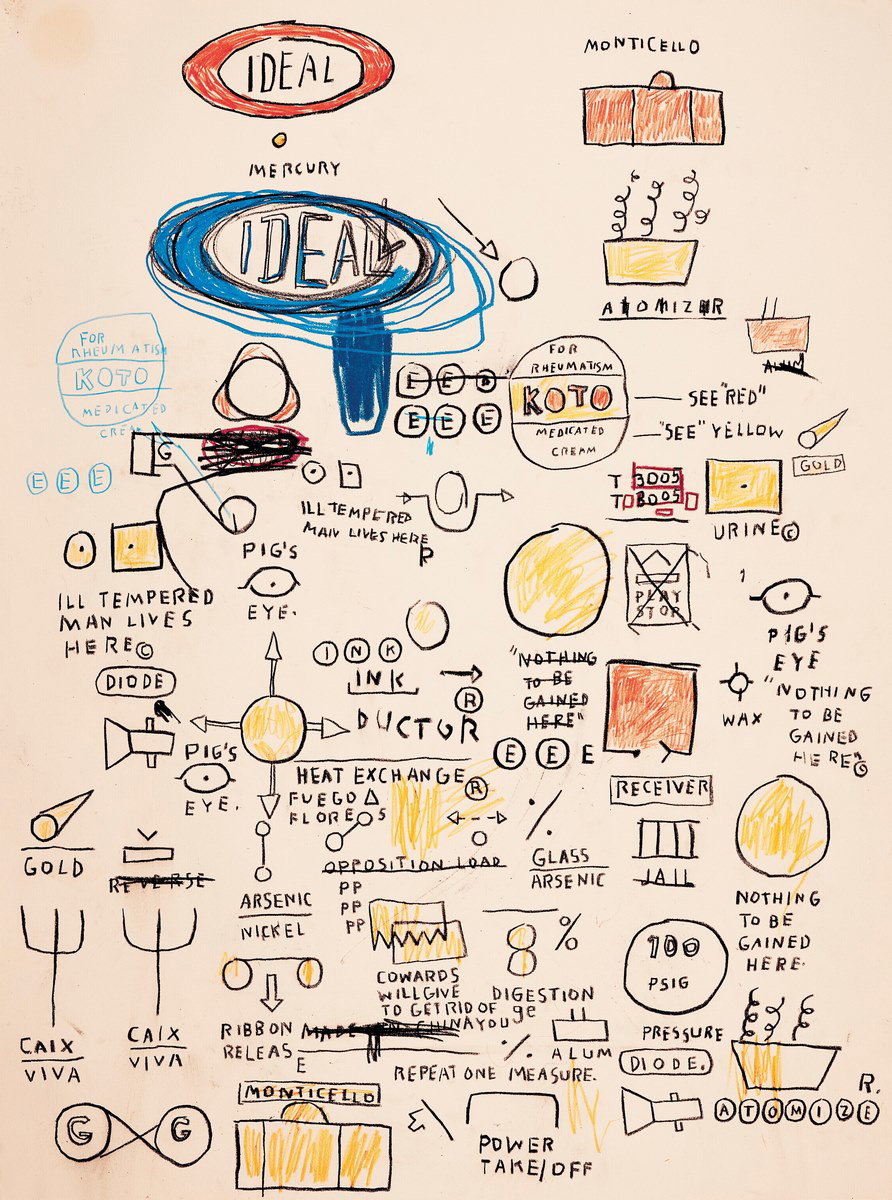 IDEAL
MONTICELLO
MERCURY
IDEAL
ATOMIZER
ALUM
FOR
RHEUMATISM
KOTO
MEDICATED
CREAM
E E E
E E
E E E
FOR
RHEUMATISM
KOTO
MEDICATED
CREAM
SEE "RED"
"SEE" YELLOW
GOLD
G
T 3005
T 8005
URINE©
ILL TEMPERED
MAN LIVES HERE
R
PIG'S
EYE.
ILL TEMPERED
MAN LIVES
HERE©
PLAY
STOP
PIG'S
EYE
INK
INK
"NOTHING
TO BE
GAINED
HERE"
WAX
"NOTHING
TO BE
GAINED
HERE"©
DIODE
®
DUCTOR
PIG'S
EYE.
E E E
HEAT EXCHANGE
®
FUEGO Δ
FLORES
RECEIVER
GOLD
REVERSE
OPPOSITION LOAD
GLASS
ARSENIC
JAIL
ARSENIC
NICKEL
PP
PP
PP
8 %
NOTHING
TO BE
GAINED
HERE.
100
PSIG
COWARDS
WILL GIVE
TO GET RID OF
YOU
DIGESTION
ge
CAIX
VIVA
CAIX
VIVA
RIBBON
RELEASE
MADE IN CHINA
ALUM
PRESSURE
REPEAT ONE MEASURE.
DIODE.
MONTICELLO
R.
ATOMIZE
G G
POWER
TAKE/OFF